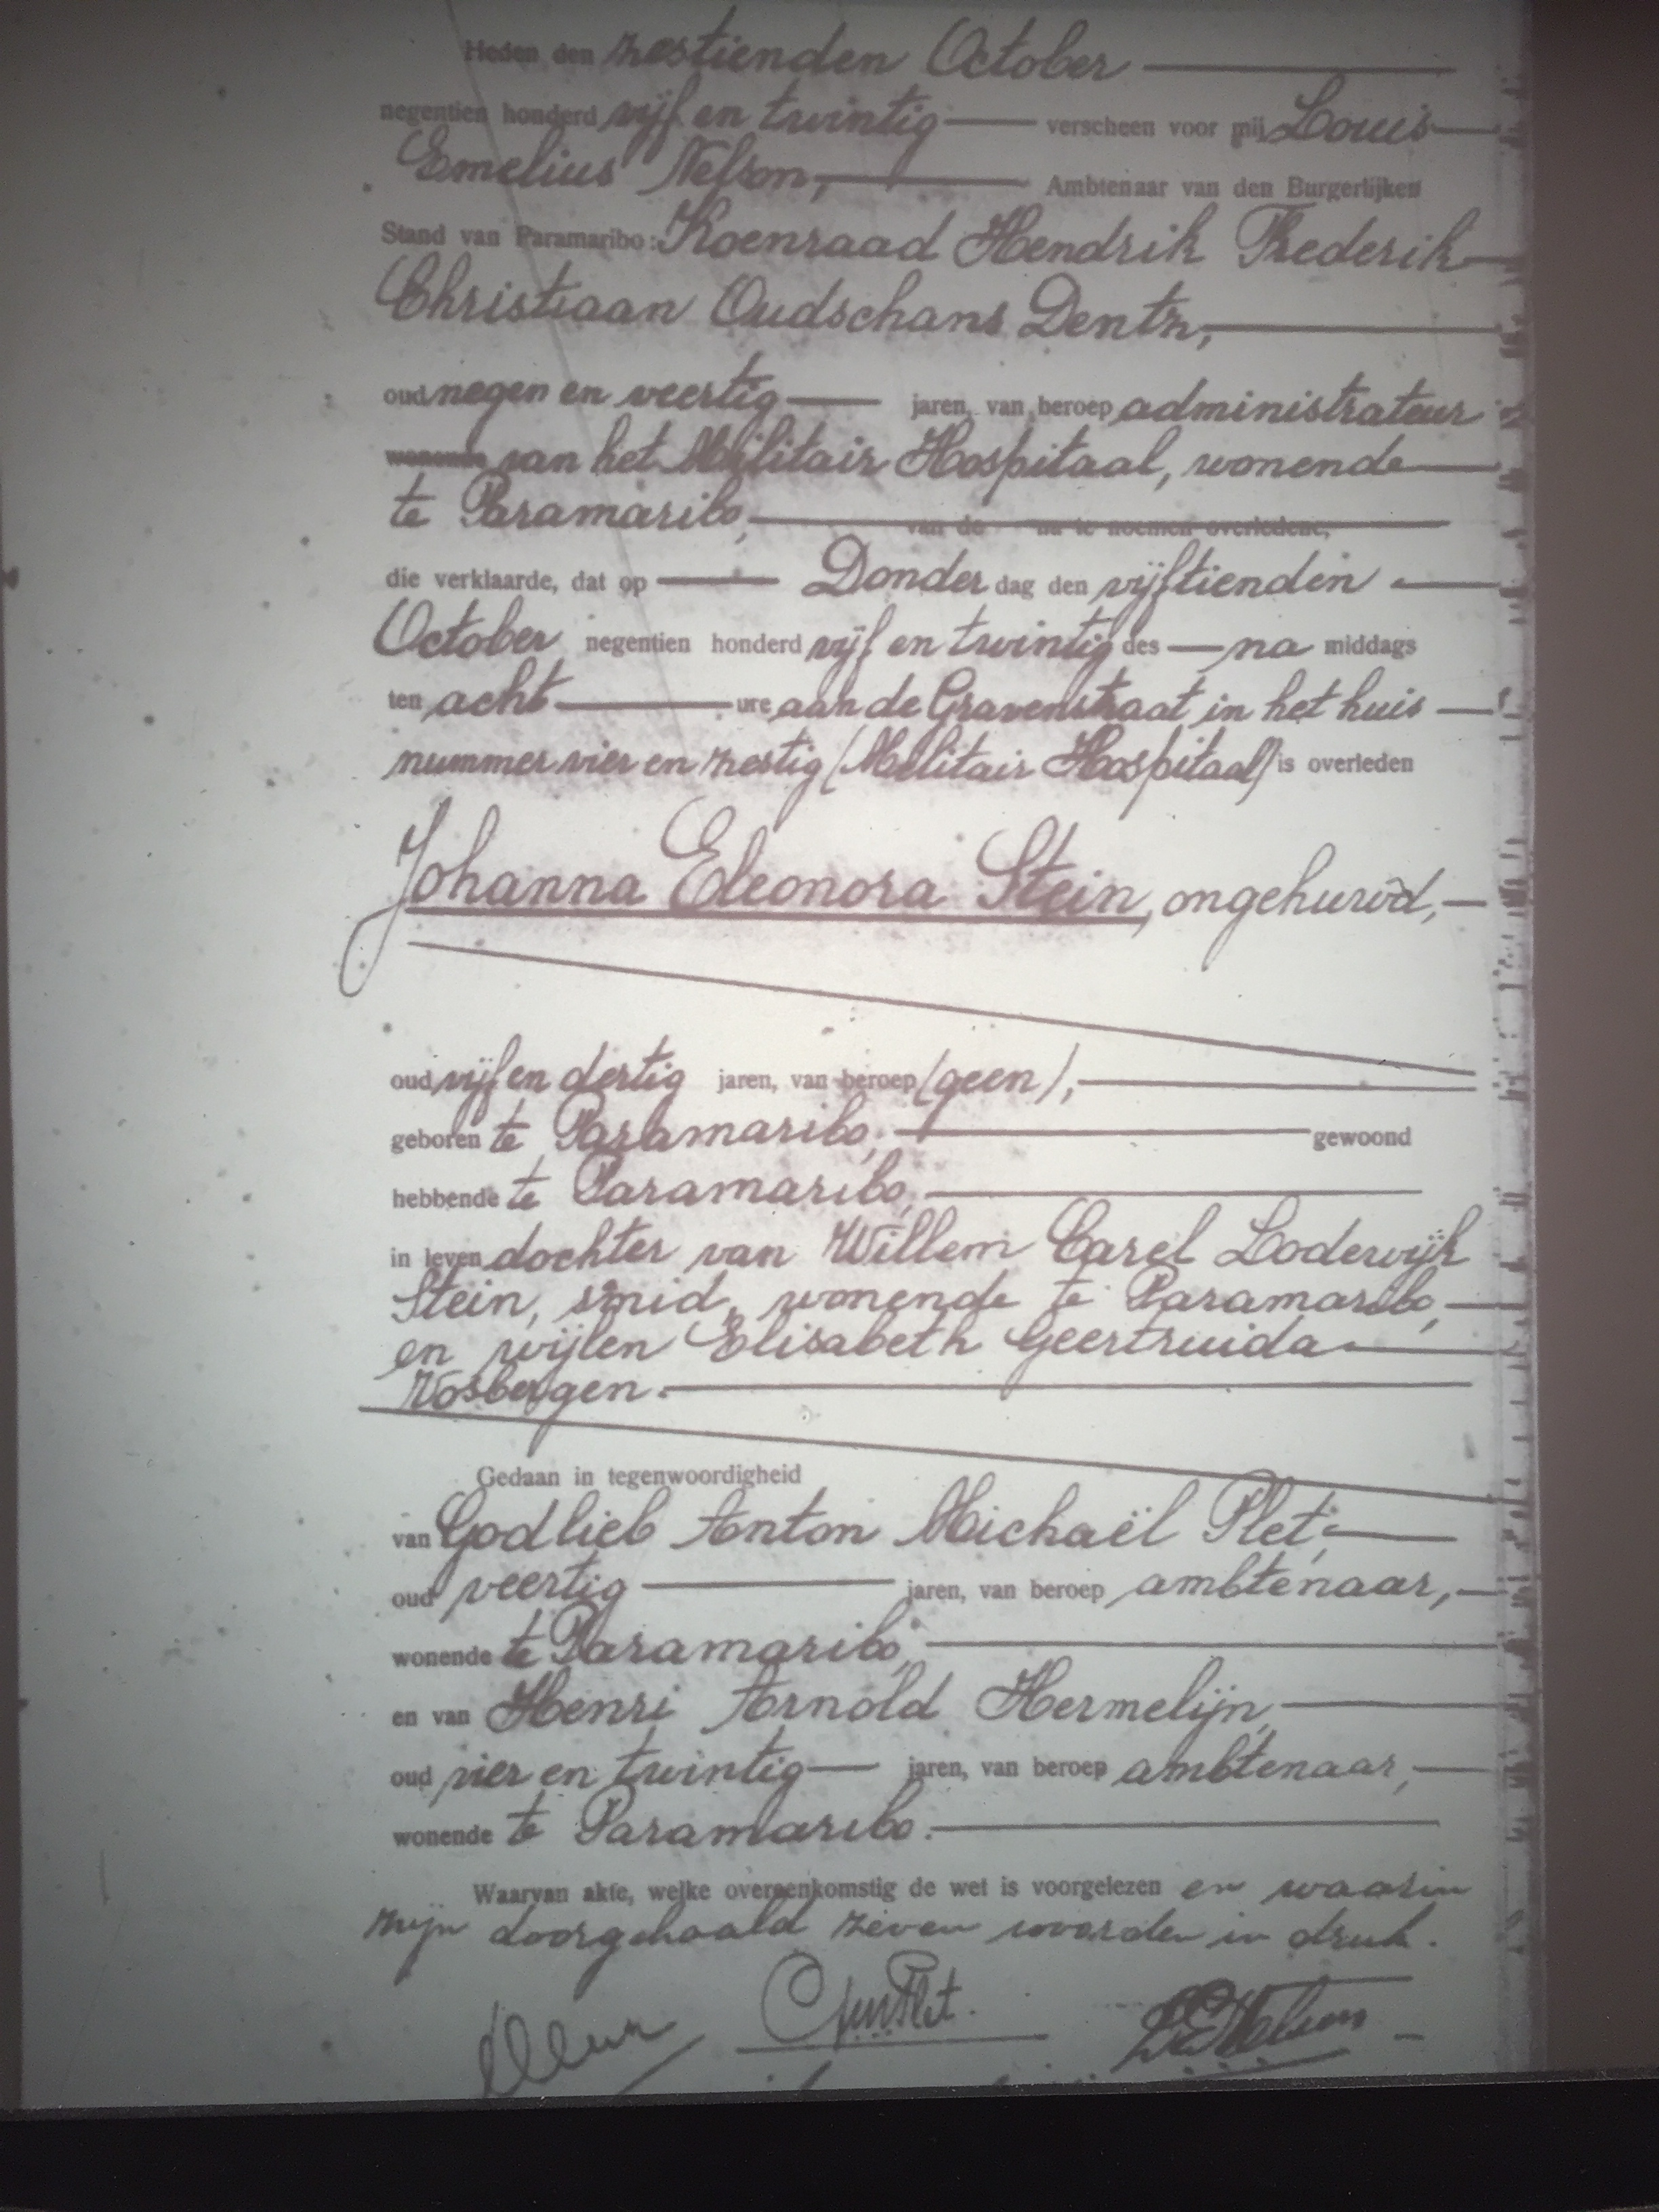 Heden den zestienden October
negentien honderd vijf en twintig verscheen voor mij Louis
Emelius Nelson, Ambtenaar van den Burgerlijken
Stand van Paramaribo: Koenraad Hendrik Frederik
Christiaan Oudschans Dentz,
oud negen en veertig jaren, van beroep administrateur
wonende van het Militair Hospitaal, wonende
te Paramaribo, van de na te noemen overledene,
die verklaarde, dat op Donderdag den vijftienden
October negentien honderd vijf en twintig des na middags
ten acht ure aan de Gravenstraat in het huis
nummer vier en zestig (Militair Hospitaal) is overleden
Johanna Eleonora Stein, ongehuwd,
oud vijf en dertig jaren, van beroep (geen),
geboren te Paramaribo, gewoond
hebbende te Paramaribo,
in leven dochter van Willem Carel Lodewijk
Stein, smid, wonende te Paramaribo,
en wijlen Elisabeth Geertruida
Vosbergen.
Gedaan in tegenwoordigheid
van Godlieb Anton Michaël Plet,
oud veertig jaren, van beroep ambtenaar,
wonende te Paramaribo,
en van Henri Arnold Hermelijn,
oud vier en twintig jaren, van beroep ambtenaar,
wonende te Paramaribo.
Waarvan akte, welke overeenkomstig de wet is voorgelezen en waarin
zijn doorgehaald zeven woorden in druk.
Plet.
LENelson